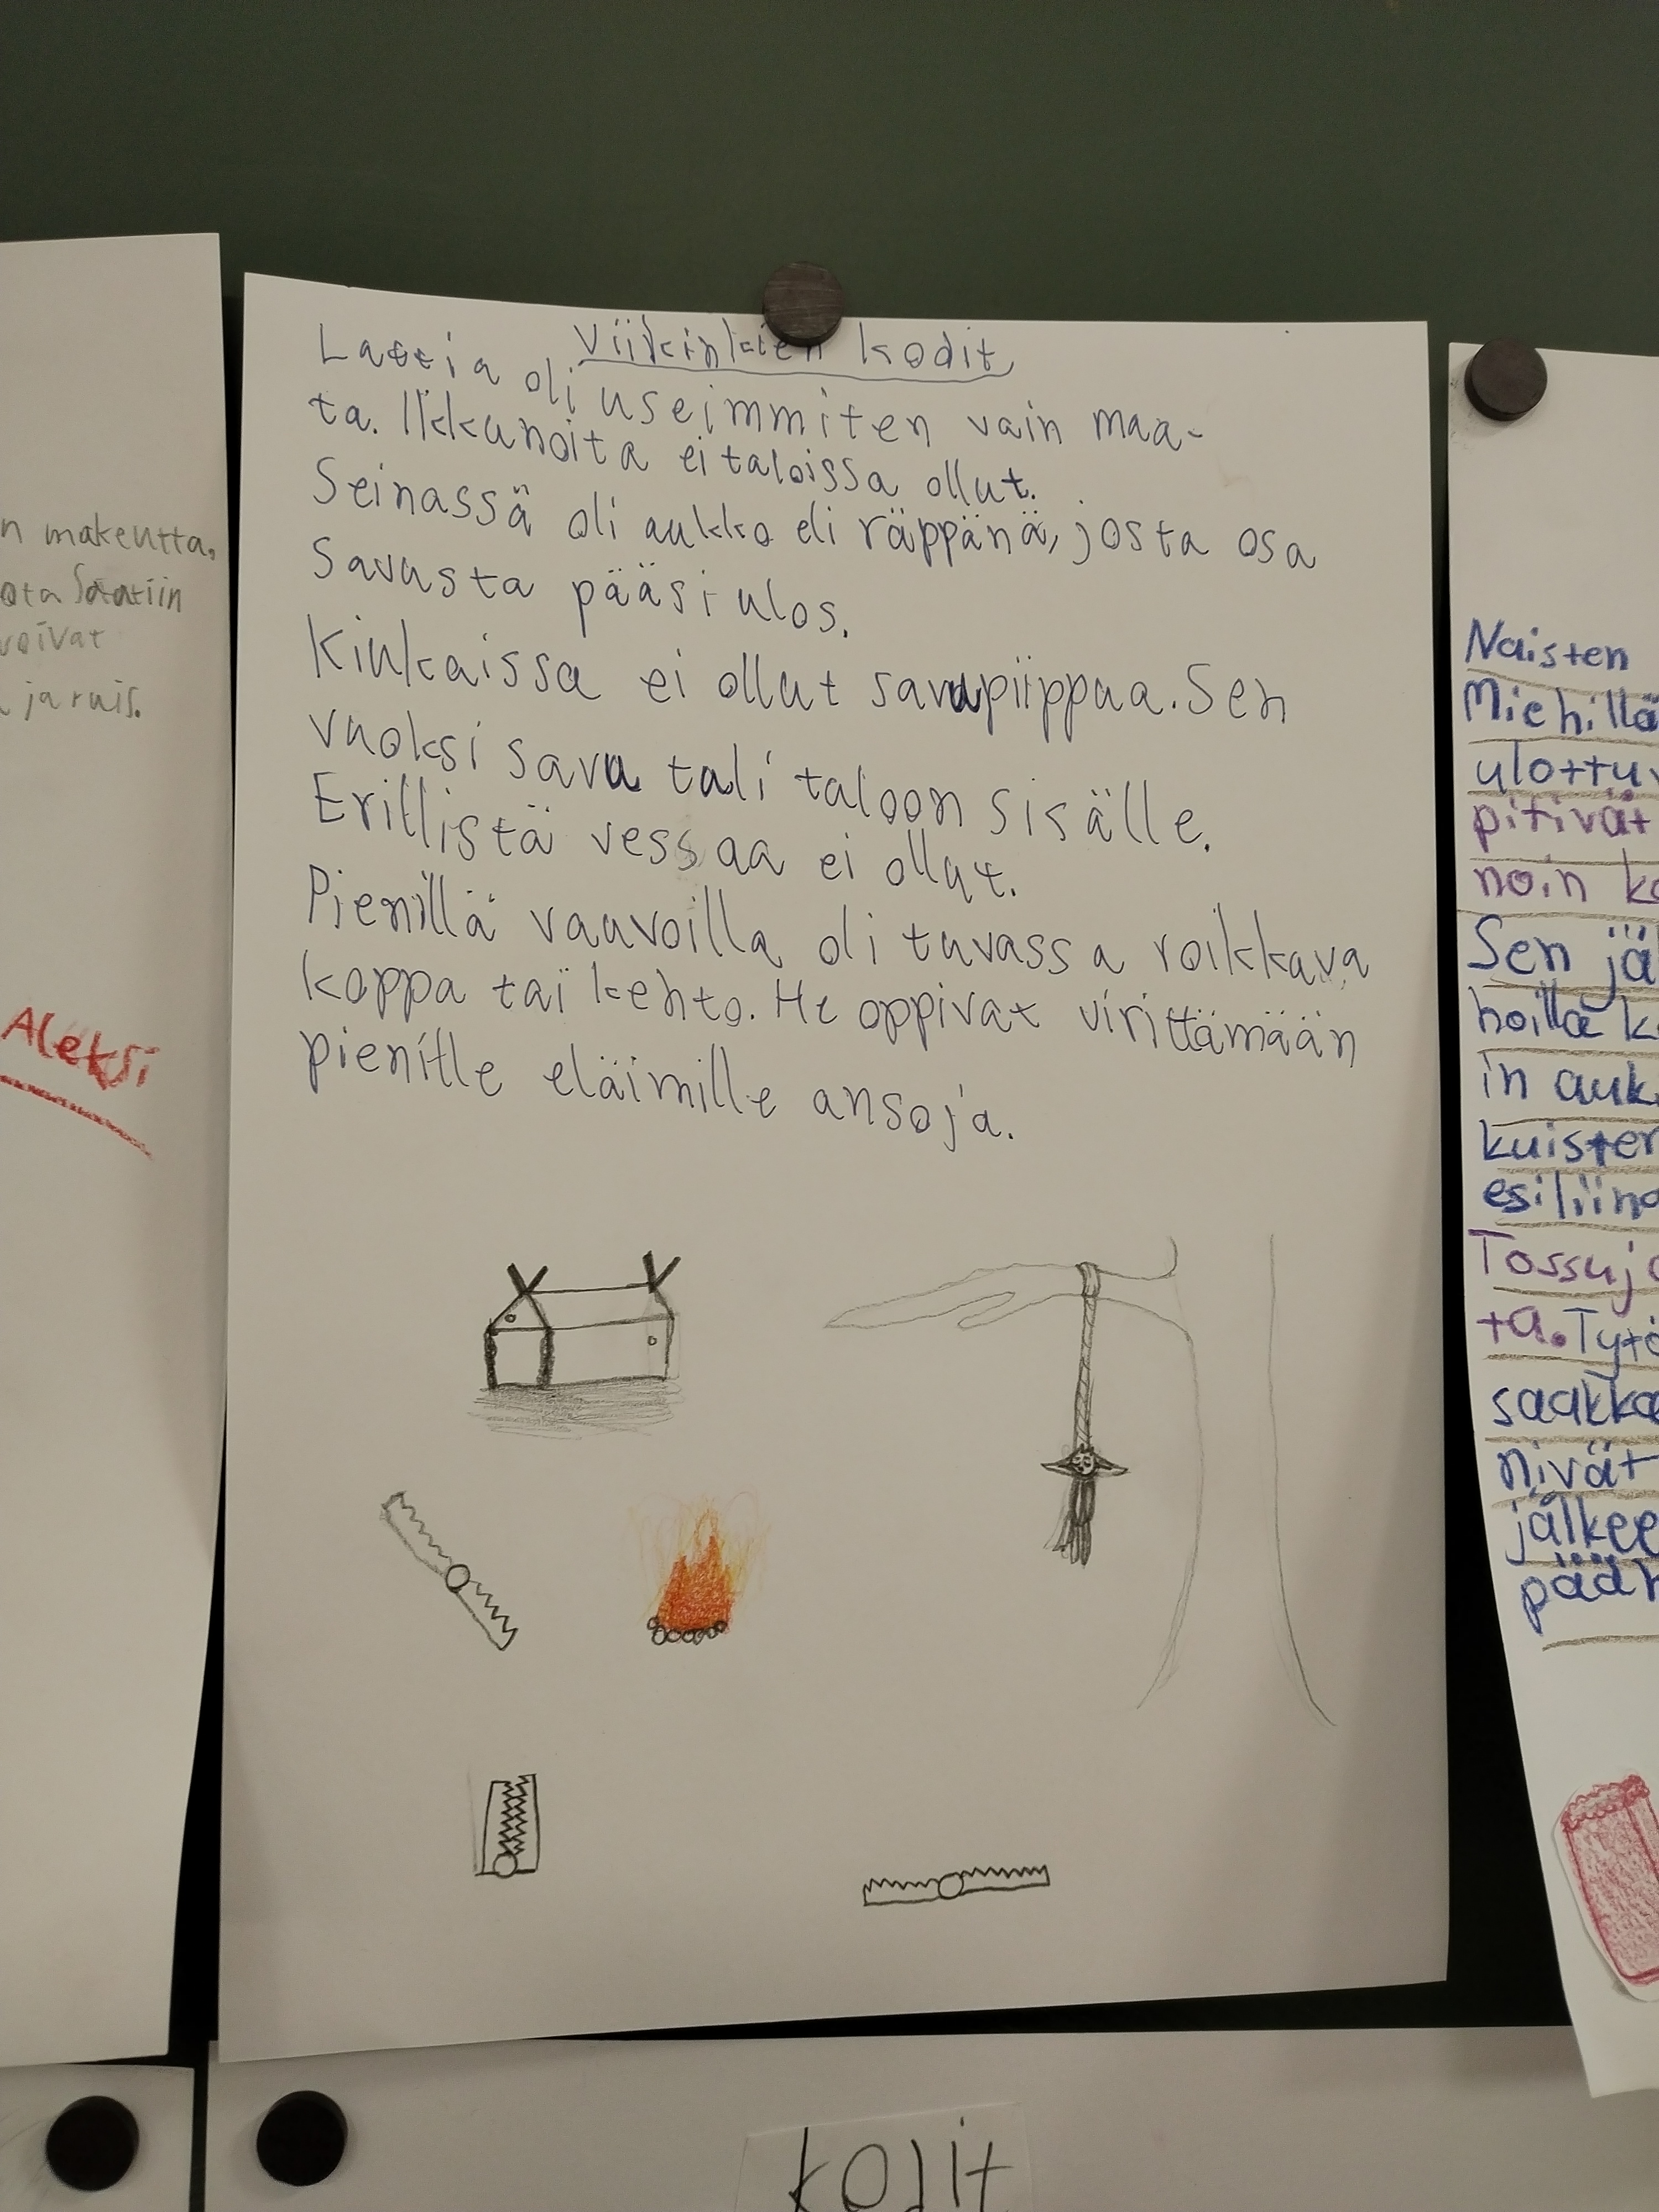 n makeutta,
ota Saatiin
voivat
ja ruis.
Aleksi
Viikinkien kodit
Lattia oli useimmiten vain maa-
ta. Ikkunoita ei taloissa ollut.
Seinassä oli aukko eli räppänä, josta osa
Savusta pääsi ulos.
Kiukaissa ei ollut savupiippua. Sen
vuoksi savu tuli taloon sisälle.
Erillistä vessaa ei ollut.
Pienillä vauvoilla oli tuvassa roikkuva
koppa tai kehto. He oppivat virittämään
pienille eläimille ansoja.
Naisten
Miehillä
ulottuv
pitivät
noin ko
Sen jä
hoilla k
in auk
kuister
esiliina
Tossuja
ta. Tytö
saakka
nivät
jälkee
pään
kodit